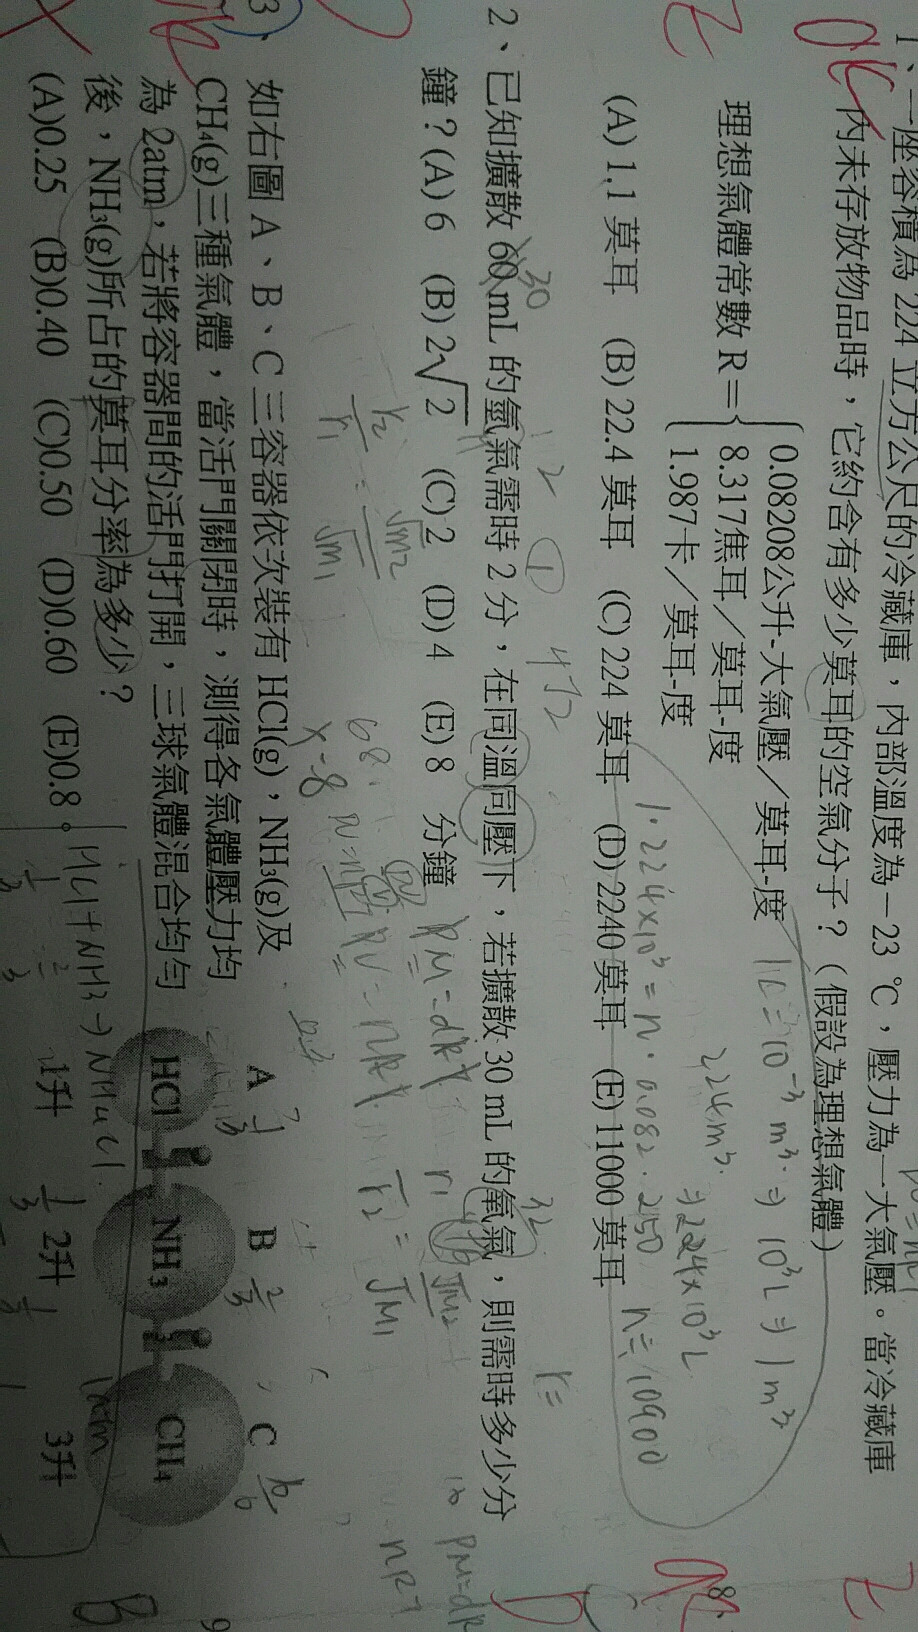 1、一座容積為 224 立方公尺的冷藏庫，內部溫度為－23 ℃，壓力為一大氣壓。當冷藏庫
內未存放物品時，它約含有多少莫耳的空氣分子？（假設為理想氣體）
0.08208公升-大氣壓／莫耳-度
理想氣體常數 R＝{ 8.317焦耳／莫耳-度
1.987卡／莫耳-度
(A) 1.1 莫耳 (B) 22.4 莫耳 (C) 224 莫耳 (D) 2240 莫耳 (E) 11000 莫耳
1L=10⁻³m³⇒10³L⇒1m³
224m³⇒224×10³L
1·224×10³=n·0.082·250 n=10900
30
32
r=
2、已知擴散 60 mL 的氫氣需時 2 分，在同溫同壓下，若擴散 30 mL 的氧氣，則需時多少分
鐘？(A) 6 (B) 2√2 (C) 2 (D) 4 (E) 8 分鐘
PM=dRT
PV=nRT
x=8
3、如右圖 A、B、C 三容器依次裝有 HCl(g)，NH₃(g)及
CH₄(g)三種氣體，當活門關閉時，測得各氣體壓力均
為 2atm，若將容器間的活門打開，三球氣體混合均勻
後，NH₃(g)所占的莫耳分率為多少？
(A)0.25 (B)0.40 (C)0.50 (D)0.60 (E)0.8。
A B C
HCl NH₃ CH₄
1升 2升 3升
HCl+NH₃→NH₄Cl
B
8、
9